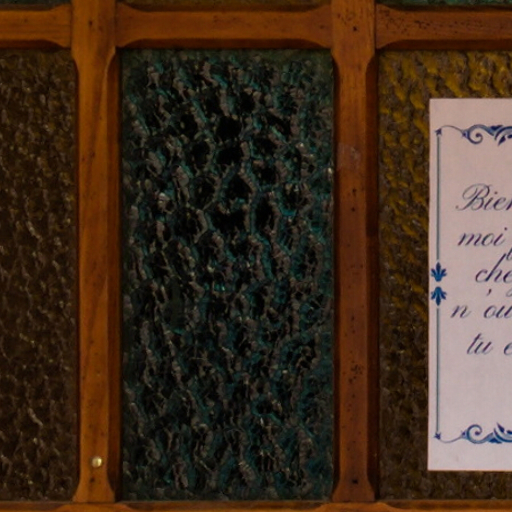 Bien
moi
che
n'ou
tu e